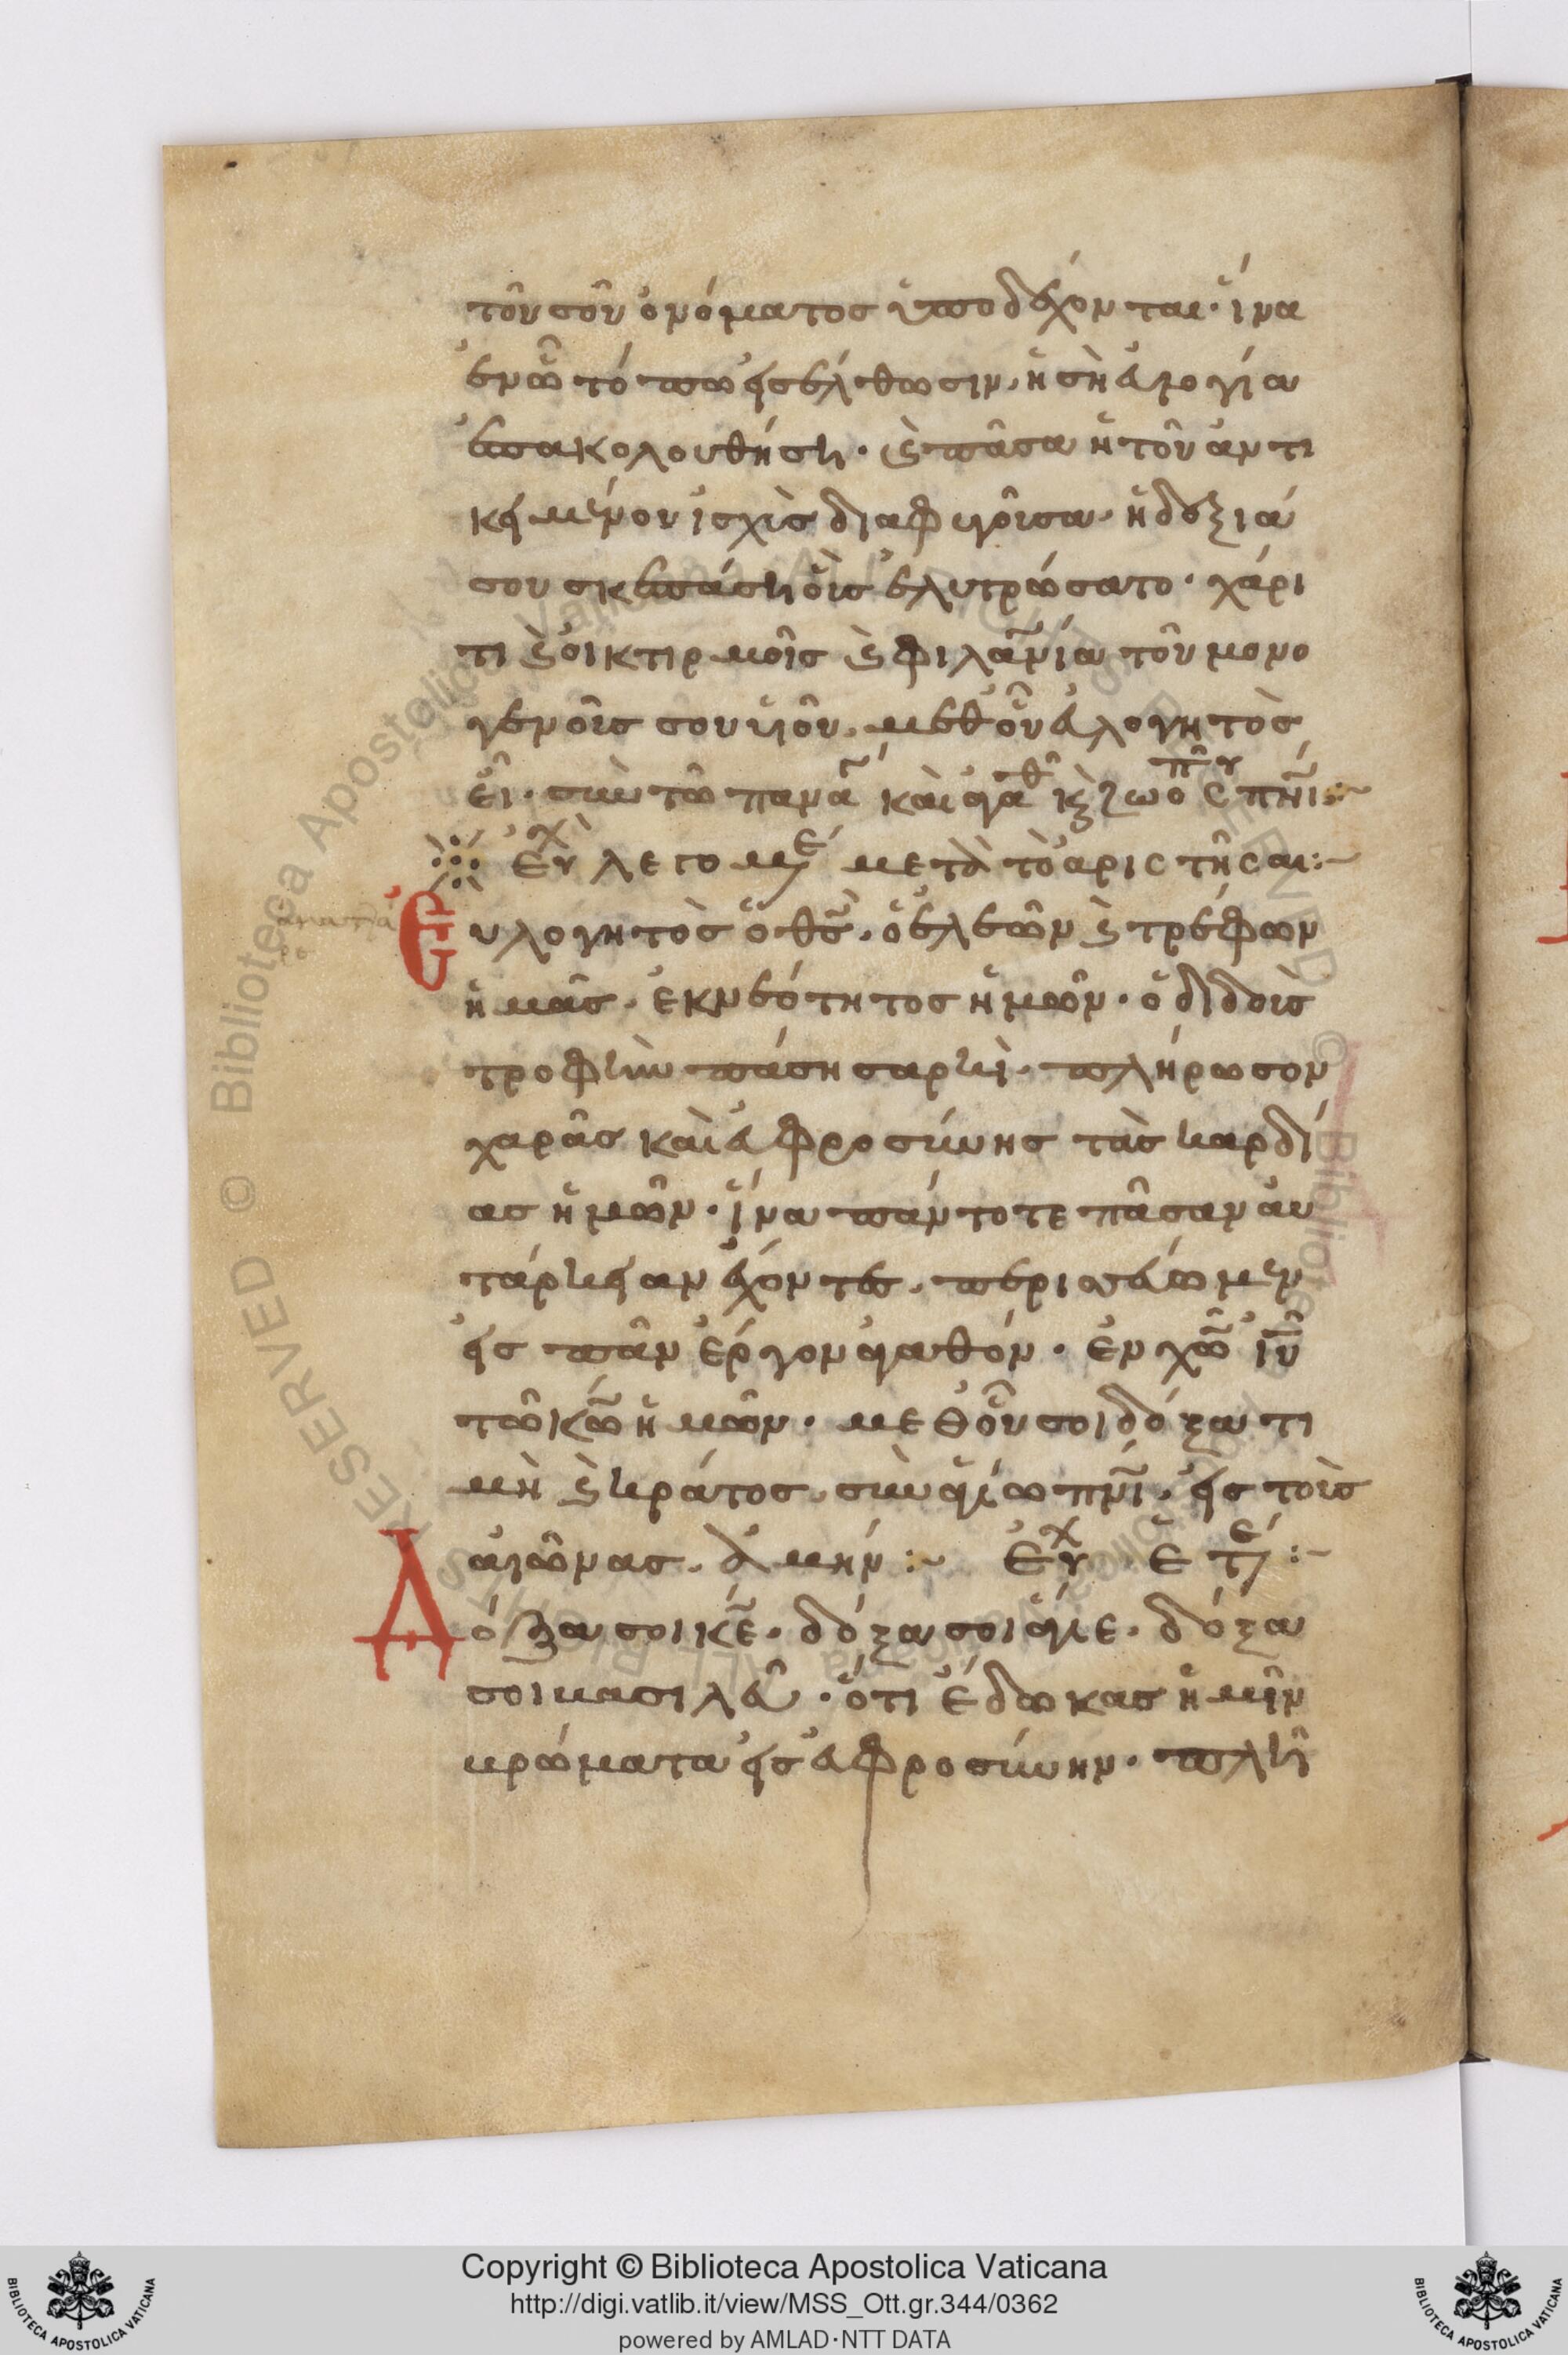 τοῦ σοῦ ὀνόματος ὑποδέχονται· ἵνα
ἐν ὧ τόπω εἰσέλθωσιν, ἡ σὴ εὐλογία
ἐπακολουθήση· καὶ πᾶσα ἡ τοῦ ἀντι
κειμένου ἰσχὺς διαφυγοῦσα· ἡ δεξιά
σου σκεπάση οὓς ἐλυτρώσατο· χάρι
τι καὶ οἰκτιρμοῖς καὶ φιλανία τοῦ μονο
γενοῦς σου υἱοῦ, μεθ οὗ εὐλογητὸς
εἶ· σὺν τῶ παναγ καὶ ἀγαθ κ ζωοπ σ πνι:~
Εὐχ λεγομέ μετὰ τὸ ἀριστῆσαι:~
Εὐλογητὸς ὁ θς, ὁ ἐλεῶν καὶ τρέφων
ἡμᾶς, ἐκ νεότητος ἡμῶν· ὁ διδοὺς
τροφὴν πάση σαρκί· πλήρωσον
χαρᾶς καὶ εὐφροσύνης τὰς καρδί
ας ἡμῶν· ἵνα πάντοτε πᾶσαν αὐ
τάρκειαν ἔχοντες, περισσεύωμεν
εἰς πᾶν ἔργον ἀγαθόν· ἐν χῶ ιυ
τῶ κω ἡμῶν· μεθ οὗ σοι δόξα τι
μὴ καὶ κράτος, σὺν ἁγίω πνι, εἰς τοὺς
αἰῶνας, ἀμήν:~ Εὐχ ἑτέ:~
Δόξα σοι κε· δόξα σοι ἅγιε· δόξα
σοι βασιλεῦ· ὅτι ἔδωκας ἡμῖν
βρώματα εἰς εὐφροσύνην· πλη
Copyright © Biblioteca Apostolica Vaticana
http://digi.vatlib.it/view/MSS_Ott.gr.344/0362
powered by AMLAD·NTT DATA